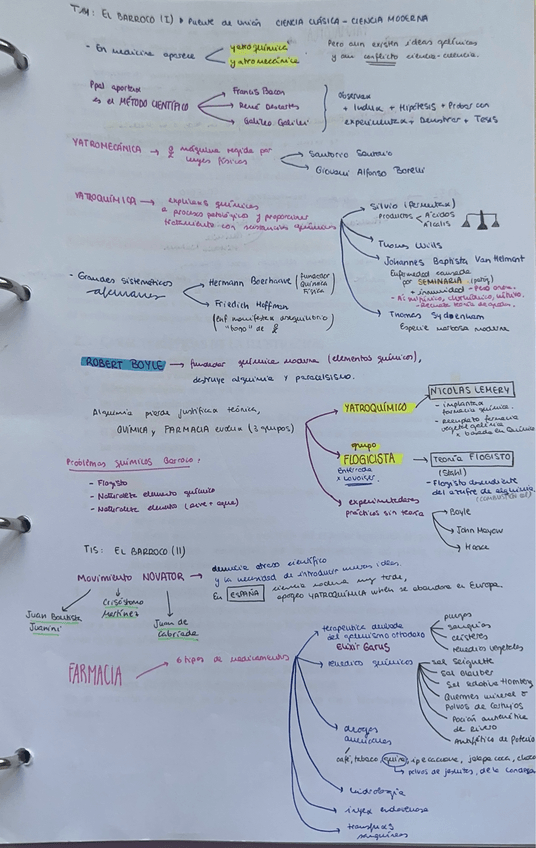 T14: EL BARROCO (I) → Puente de unión CIENCIA CLÁSICA - CIENCIA MODERNA
- En medicina aparece
yatroquímica
yatromecánica
Pero aun existen ideas galénicas
y aun conflicto ciencia-creencia.
Ppal aportac
es el MÉTODO CIENTÍFICO
Francis Bacon
René Descartes
Galileo Galilei
Observac
+ Induce + Hipótesis + Probar con
experimentac + Demostrar + Tesis
YATROMECÁNICA → máquina regida por
leyes físicas
Santorio Santorio
Giovani Alfonso Borelli
YATROQUÍMICA → explicac químicas
a proceso patológico y proporcionar
tratamiento con sustancias químicas
Silvio (fermentac)
Productos
Ácidos
Álcalis
Thomas Willis
Johannes Baptista Van Helmont
Enfermedad causada
por SEMINARIA
+ inmunidad
Thomas Sydenham
Especie morbosa moderna
- Grandes sistemáticos
alemanes
Hermann Boerhaave (fundador
Química
Física)
Friedich Hoffman
(enf manifiesta desequilibrio
"tono" de
ROBERT BOYLE → fundador química moderna (elementos químicos),
destruye alquimia y paracelsismo.
Alquimia pierde justifica teórica,
QUÍMICA y FARMACIA evoluc (3 grupos)
YATROQUÍMICO
NICOLAS LEMERY
- implantac
farmacia química.
- Recupeac farmacia
vegetal galénica
x basada en Química
grupo
FLOGICISTA
Enterrada
x Lavoiser
TEORÍA FLOGISTO
(Stahl)
- Flogisto
del azufre de alquimia
experimentadores
prácticos sin teoría
Boyle
John Mayow
Problemas químicos Barroco:
- Flogisto
- Naturaleza elemento químico
- Naturaleza elemento (aire + agua)
T15: EL BARROCO (II)
Movimiento NOVATOR
denuncia atraso científico
y la necesidad de introducir nuevas ideas.
En ESPAÑA ciencia moderna muy tarde,
apogeo YATROQUÍMICA when se abandona en Europa.
Juan Bautista
Juanini
Crisóstomo
Martínez
Juan de
Cabriada
FARMACIA
6 tipos de medicamentos
terapeutica derivada
del galenismo ortodoxo
ELIXIR GARUS
purgas
sangrías
clísteres
remedios vegetales
remedios químicos
Sal Seignette
Sal Glauber
Sal sedativa Homberg
Quermes mineral o
Polvos de Cartujos
Poción antiemética
de Riverio
Antifético de Poterio
drogas
americanas
café, tabaco, quina, ipecacuana, jalapa coca,
polvos de jesuitas, de la condesa
hidrología
inyecc endovenosa
transfus
sanguíneas